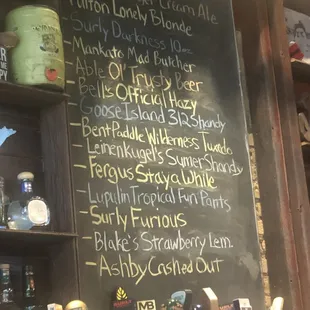 Cream Ale
Fulton Lonely Blonde
Surly Darkness 10oz
Mankato Mad Butcher
- Able Ol' Trusty Beer
- Bell's Official Hazy
- Goose Island 312 Shandy
- Bent Paddle Wilderness Tuxedo
- Leinenkugel's Sumer Shandy
- Fergus Stay a While
- Lupulin Tropical Fun Pants
- Surly Furious
- Blake's Strawberry Lem.
- Ashby Cashed Out
MB